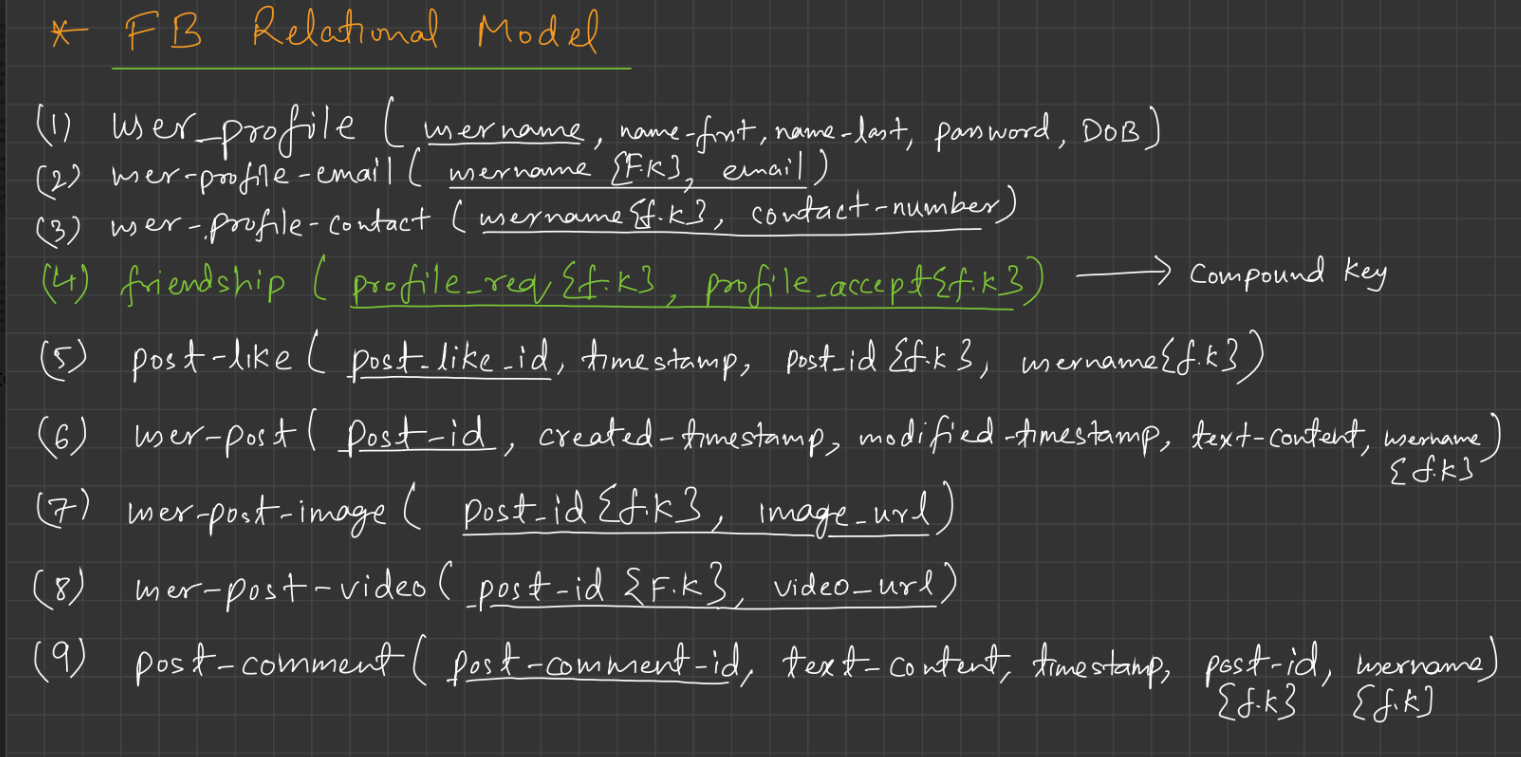 * FB Relational Model
(1) user_profile ( username, name-first, name-last, password, DOB)
(2) user-profile-email ( username {F.K}, email)
(3) user-profile-contact ( username {f.k}, contact-number)
(4) friendship ( profile_req {f.k}, profile_accept {f.k}) → Compound key
(5) post-like ( post_like_id, timestamp, post_id {f.k}, username {f.k})
(6) user-post ( post-id, created-timestamp, modified-timestamp, text-content, username)
{f.k}
(7) user-post-image ( post_id {f.k}, image_url)
(8) user-post-video ( post-id {F.K}, video_url)
(9) post-comment ( post-comment-id, text-content, timestamp, post-id, username)
{f.k} {f.k]